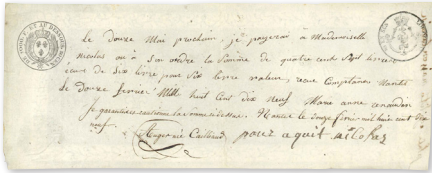 Le douze Mai prochain je payerai a Mademoiselle
Nicolas ou à son ordre la somme de quatre cent Sept livres
ecus de six livre pour six livre valeur reçue Comptant Nantes
Le douze fevrier Mille huit Cent dix neuf Marie anne
je garantie la somme ci dessus Nantes le douze fevrier mil huit cent dix
neuf
Cailbaud pour aquit nicolas